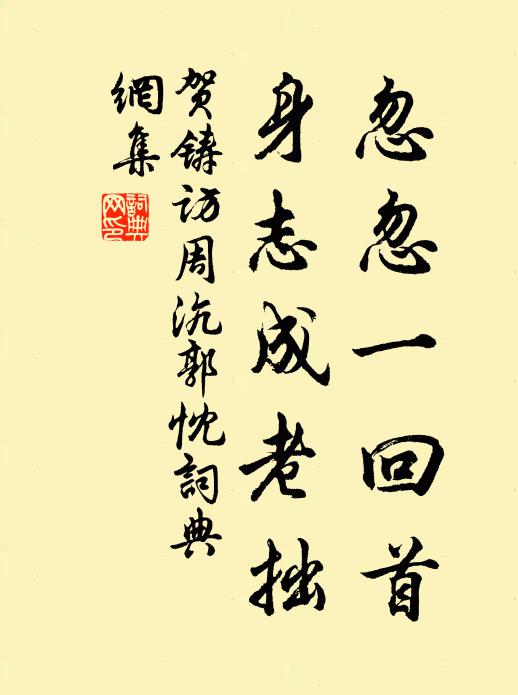 忽忽一回首
身志成老拙
贺鑄访周沇郭忱詞典
網集
詞典
网印